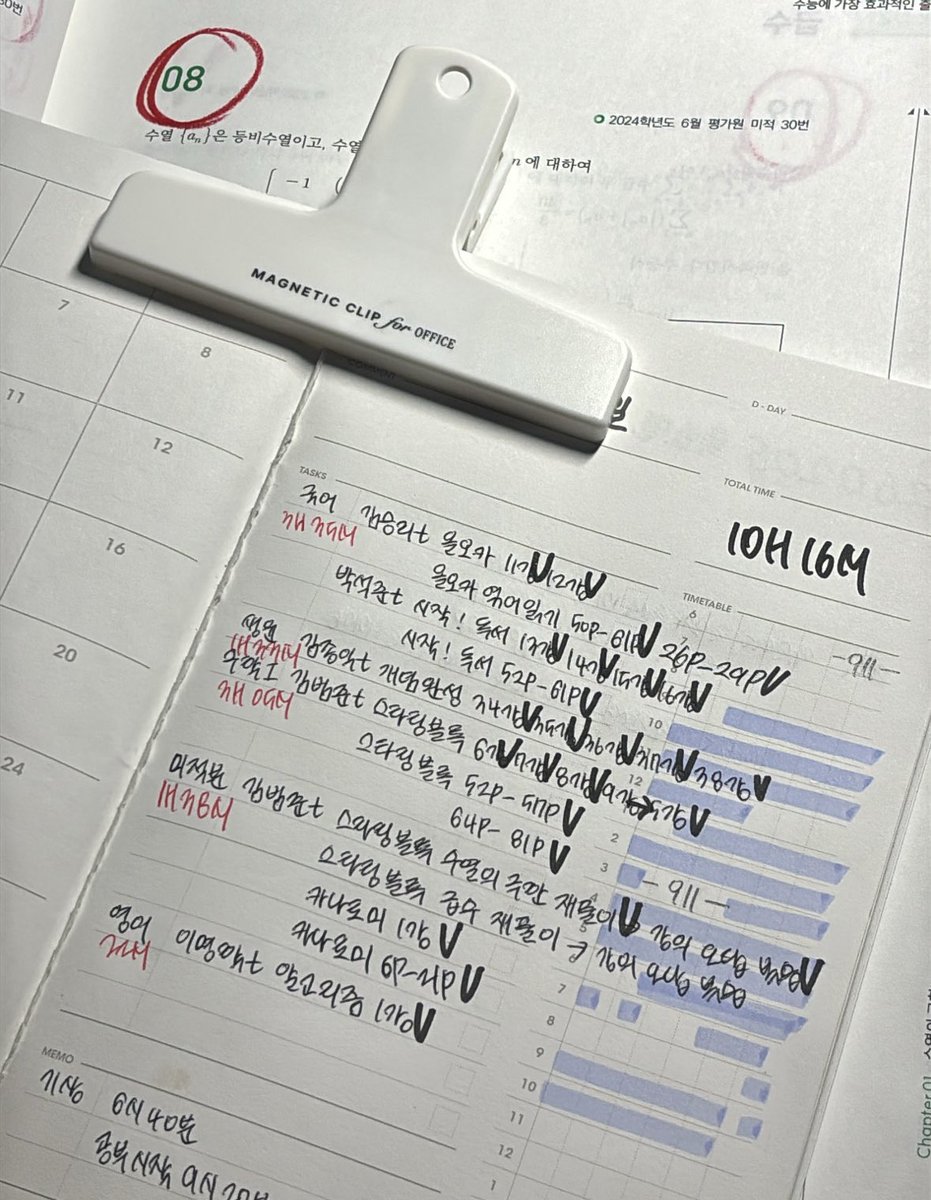 수능에 가장 효과적인
08
2024학년도 6월 평가원 미적 30번
수열 {aₙ}은 등비수열이고, 수열
n에 대하여
-1
MAGNETIC CLIP for OFFICE
7
8
11
12
16
20
24
COMMENT
일
D-DAY
TASKS
TOTAL TIME
10H 16M
국어 김승리t 올오카 11강V12강V
올오카 엮어읽기 50P-61PV 26P-29PV
박석준t 시작! 독서 13강V14강V15강V16강V
시작! 독서 52P-61PV
생윤 김종익t 개념완성 34강V35강V36강V37강V38강V
수학I 김범준t 스타팅블록 6강V7강V8강V9강→5강V
스타팅 블록 52P-57PV
64P-81PV
미적분 김범준t 스타팅블록 수열의 극한 재풀이V 강의 오답 복습V
스타팅 블록 급수 재풀이 → 강의 오답 복습
카나토미 1강 V
카나토미 6P-21PV
영어 이명학t 알고리즘 1강V
TIMETABLE
6
7
-911-
10
12
2
3
-911-
7
8
9
10
11
12
1
MEMO
기상 6시 40분
공부시작 9시
Chapter 01